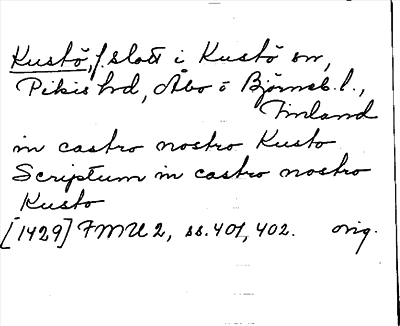 Kustö, f. slott i Kustö sn,
Pikis hd, Åbo o Björneb. l.,
Finland
in castro nostro Kusto
Scriptum in castro nostro
Kusto
[1429] FMU 2, ss. 401, 402. orig.